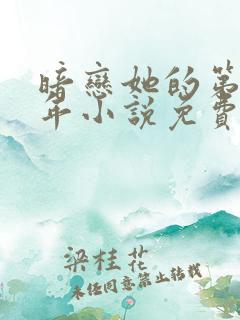 暗戀她的第
年小說免費
梁桂花
未任同意禁止转载